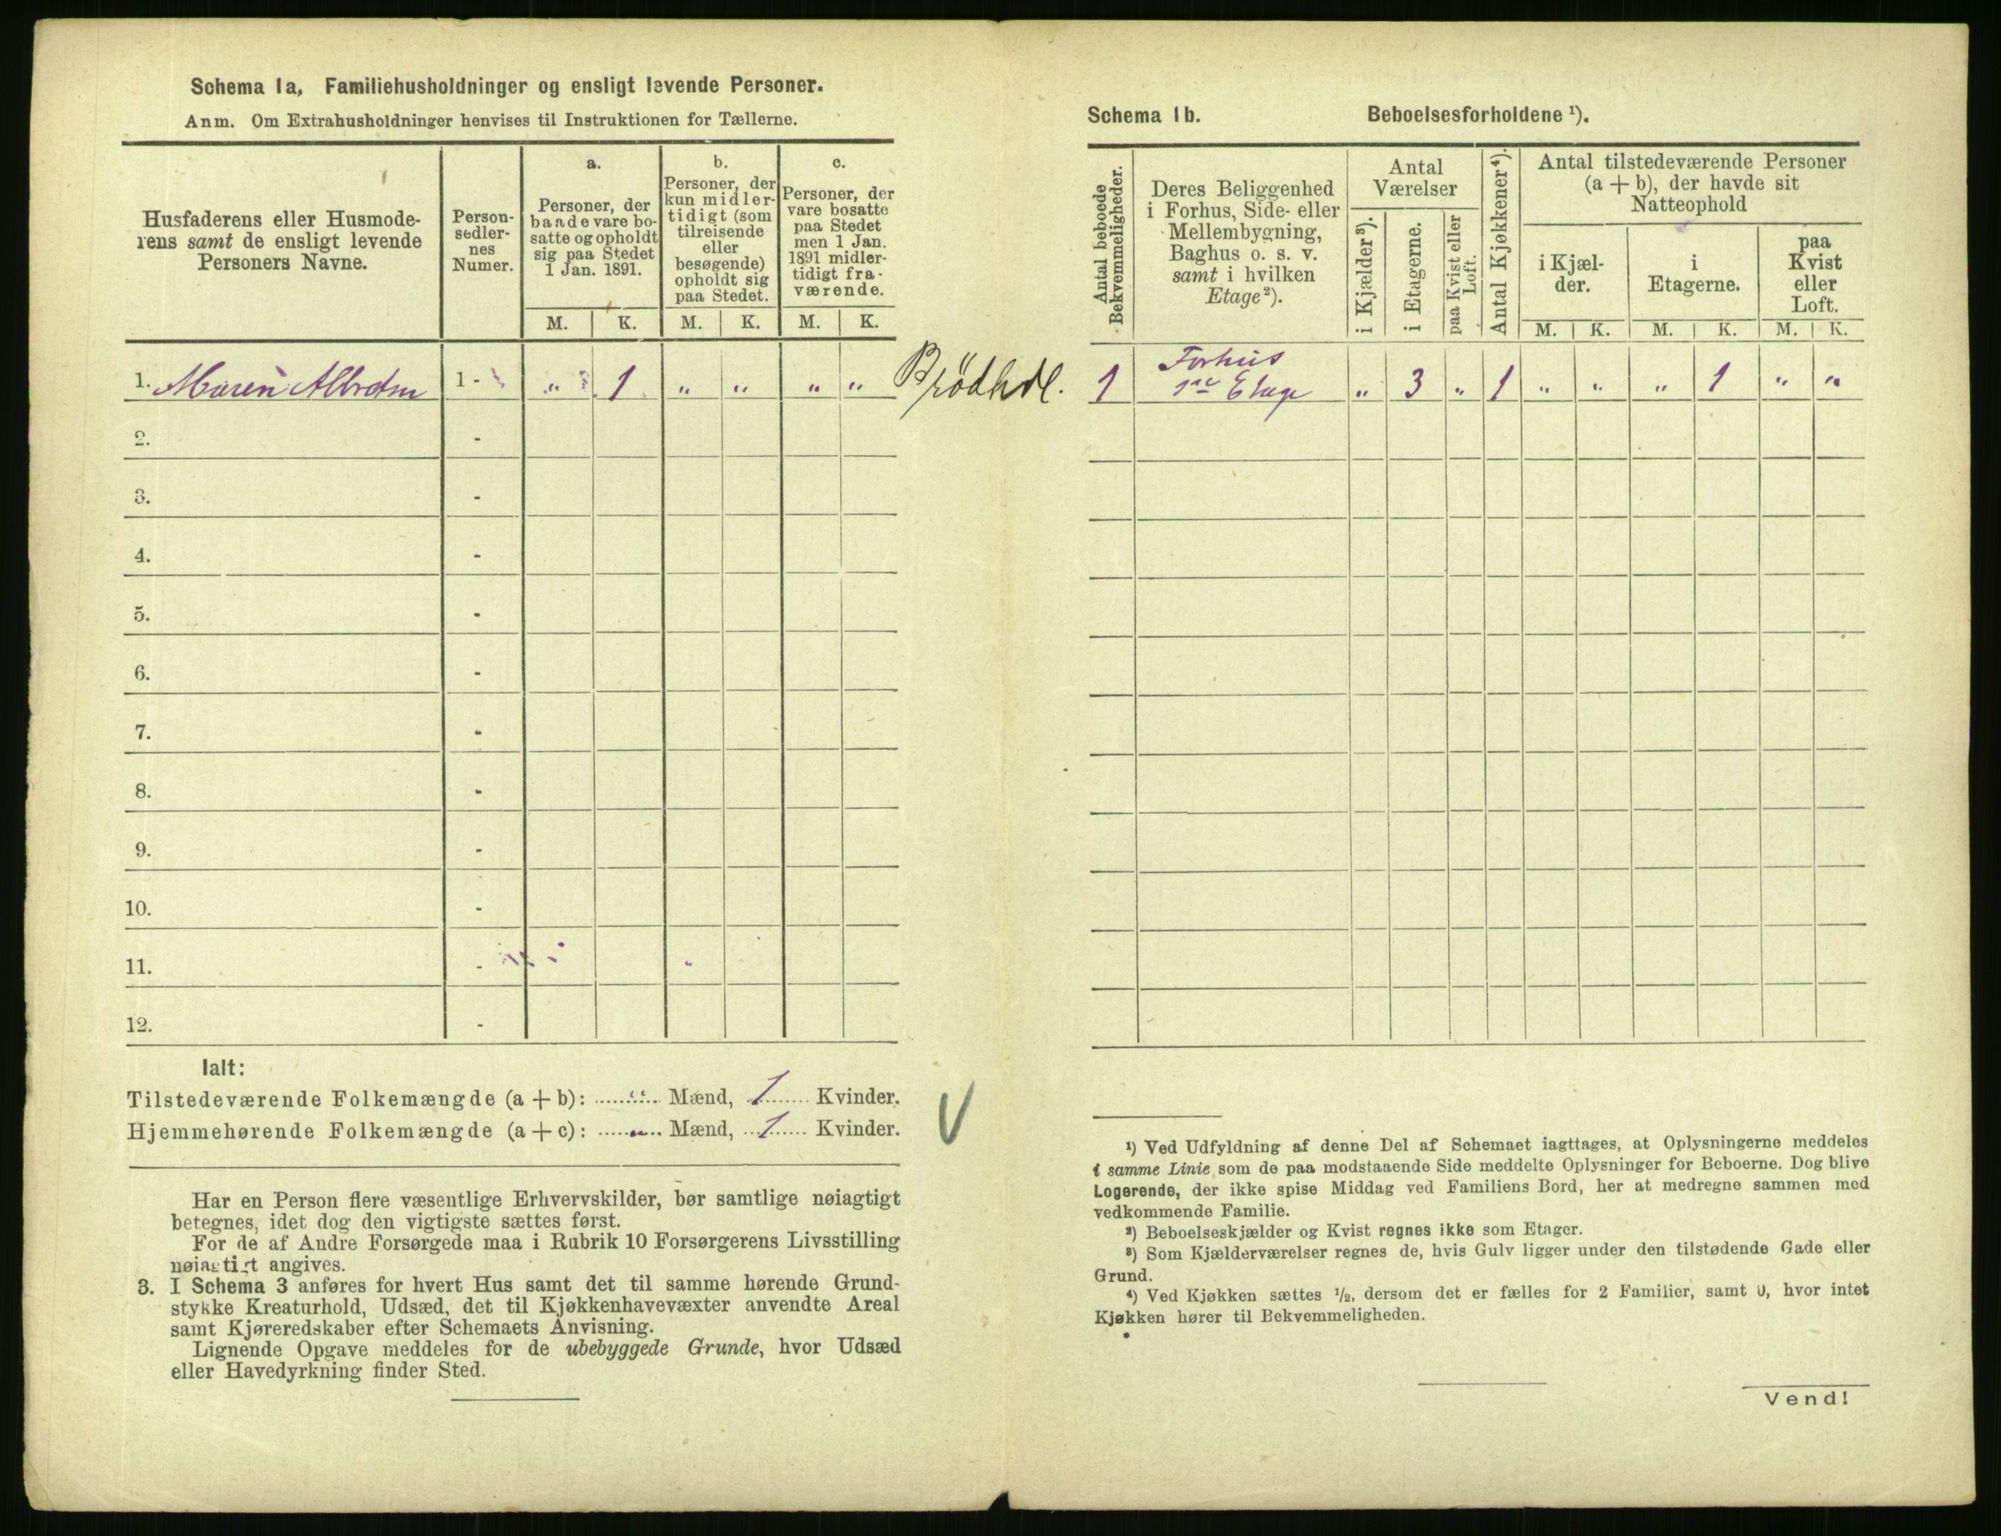 Schema 1a, Familiehusholdninger og ensligt levende Personer.
Anm. Om Extrahusholdninger henvises til Instruktionen for Tællerne.
Husfaderens eller Husmode-
rens samt de ensligt levende
Personers Navne.
Person-
sedler-
nes
Numer.
a.
Personer, der
baade vare bo-
satte og opholdt
sig paa Stedet
1 Jan. 1891.
b.
Personer, der
kun midler-
tidigt (som
tilreisende
eller
besøgende)
opholdt sig
paa Stedet.
c.
Personer, der
vare bosatte
paa Stedet
men 1 Jan.
1891 midler-
tidigt fra-
værende.
M. K. M. K. M. K.
1. Maren 1 - „ 1 „ „ „ „ Brødhdl.
2. -
3. -
4. -
5. -
6. -
7. -
8. -
9. -
10. -
11. -
12. -
Ialt:
Tilstedeværende Folkemængde (a + b): „ Mænd, 1 Kvinder.
Hjemmehørende Folkemængde (a + c): „ Mænd, 1 Kvinder.
Har en Person flere væsentlige Erhvervskilder, bør samtlige nøiagtigt
betegnes, idet dog den vigtigste sættes først.
For de af Andre Forsørgede maa i Rubrik 10 Forsørgerens Livsstilling
nøiagtigt angives.
3. I Schema 3 anføres for hvert Hus samt det til samme hørende Grund-
stykke Kreaturhold, Udsæd, det til Kjøkkenhavevæxter anvendte Areal
samt Kjøreredskaber efter Schemaets Anvisning.
Lignende Opgave meddeles for de ubebyggede Grunde, hvor Udsæd
eller Havedyrkning finder Sted.
Schema 1b. Beboelsesforholdene ¹).
Antal beboede
Bekvemmeligheder.
Deres Beliggenhed
i Forhus, Side- eller
Mellembygning,
Baghus o. s. v.
samt i hvilken
Etage ²).
Antal
Værelser
i Kjælder ³).
i Etagerne.
paa Kvist eller
Loft.
Antal Kjøkkener ⁴).
Antal tilstedeværende Personer
(a + b), der havde sit
Natteophold
i Kjæl-
der.
i
Etagerne.
paa
Kvist
eller
Loft.
M. K. M. K. M. K.
1 Forhus
1ste Etage „ 3 „ 1 „ „ „ 1 „ „
¹) Ved Udfyldning af denne Del af Schemaet iagttages, at Oplysningerne meddeles
i samme Linie som de paa modstaaende Side meddelte Oplysninger for Beboerne. Dog blive
Logerende, der ikke spise Middag ved Familiens Bord, her at medregne sammen med
vedkommende Familie.
²) Beboelseskjælder og Kvist regnes ikke som Etager.
³) Som Kjælderværelser regnes de, hvis Gulv ligger under den tilstødende Gade eller
Grund.
⁴) Ved Kjøkken sættes ½, dersom det er fælles for 2 Familier, samt 0, hvor intet
Kjøkken hører til Bekvemmeligheden.
Vend!